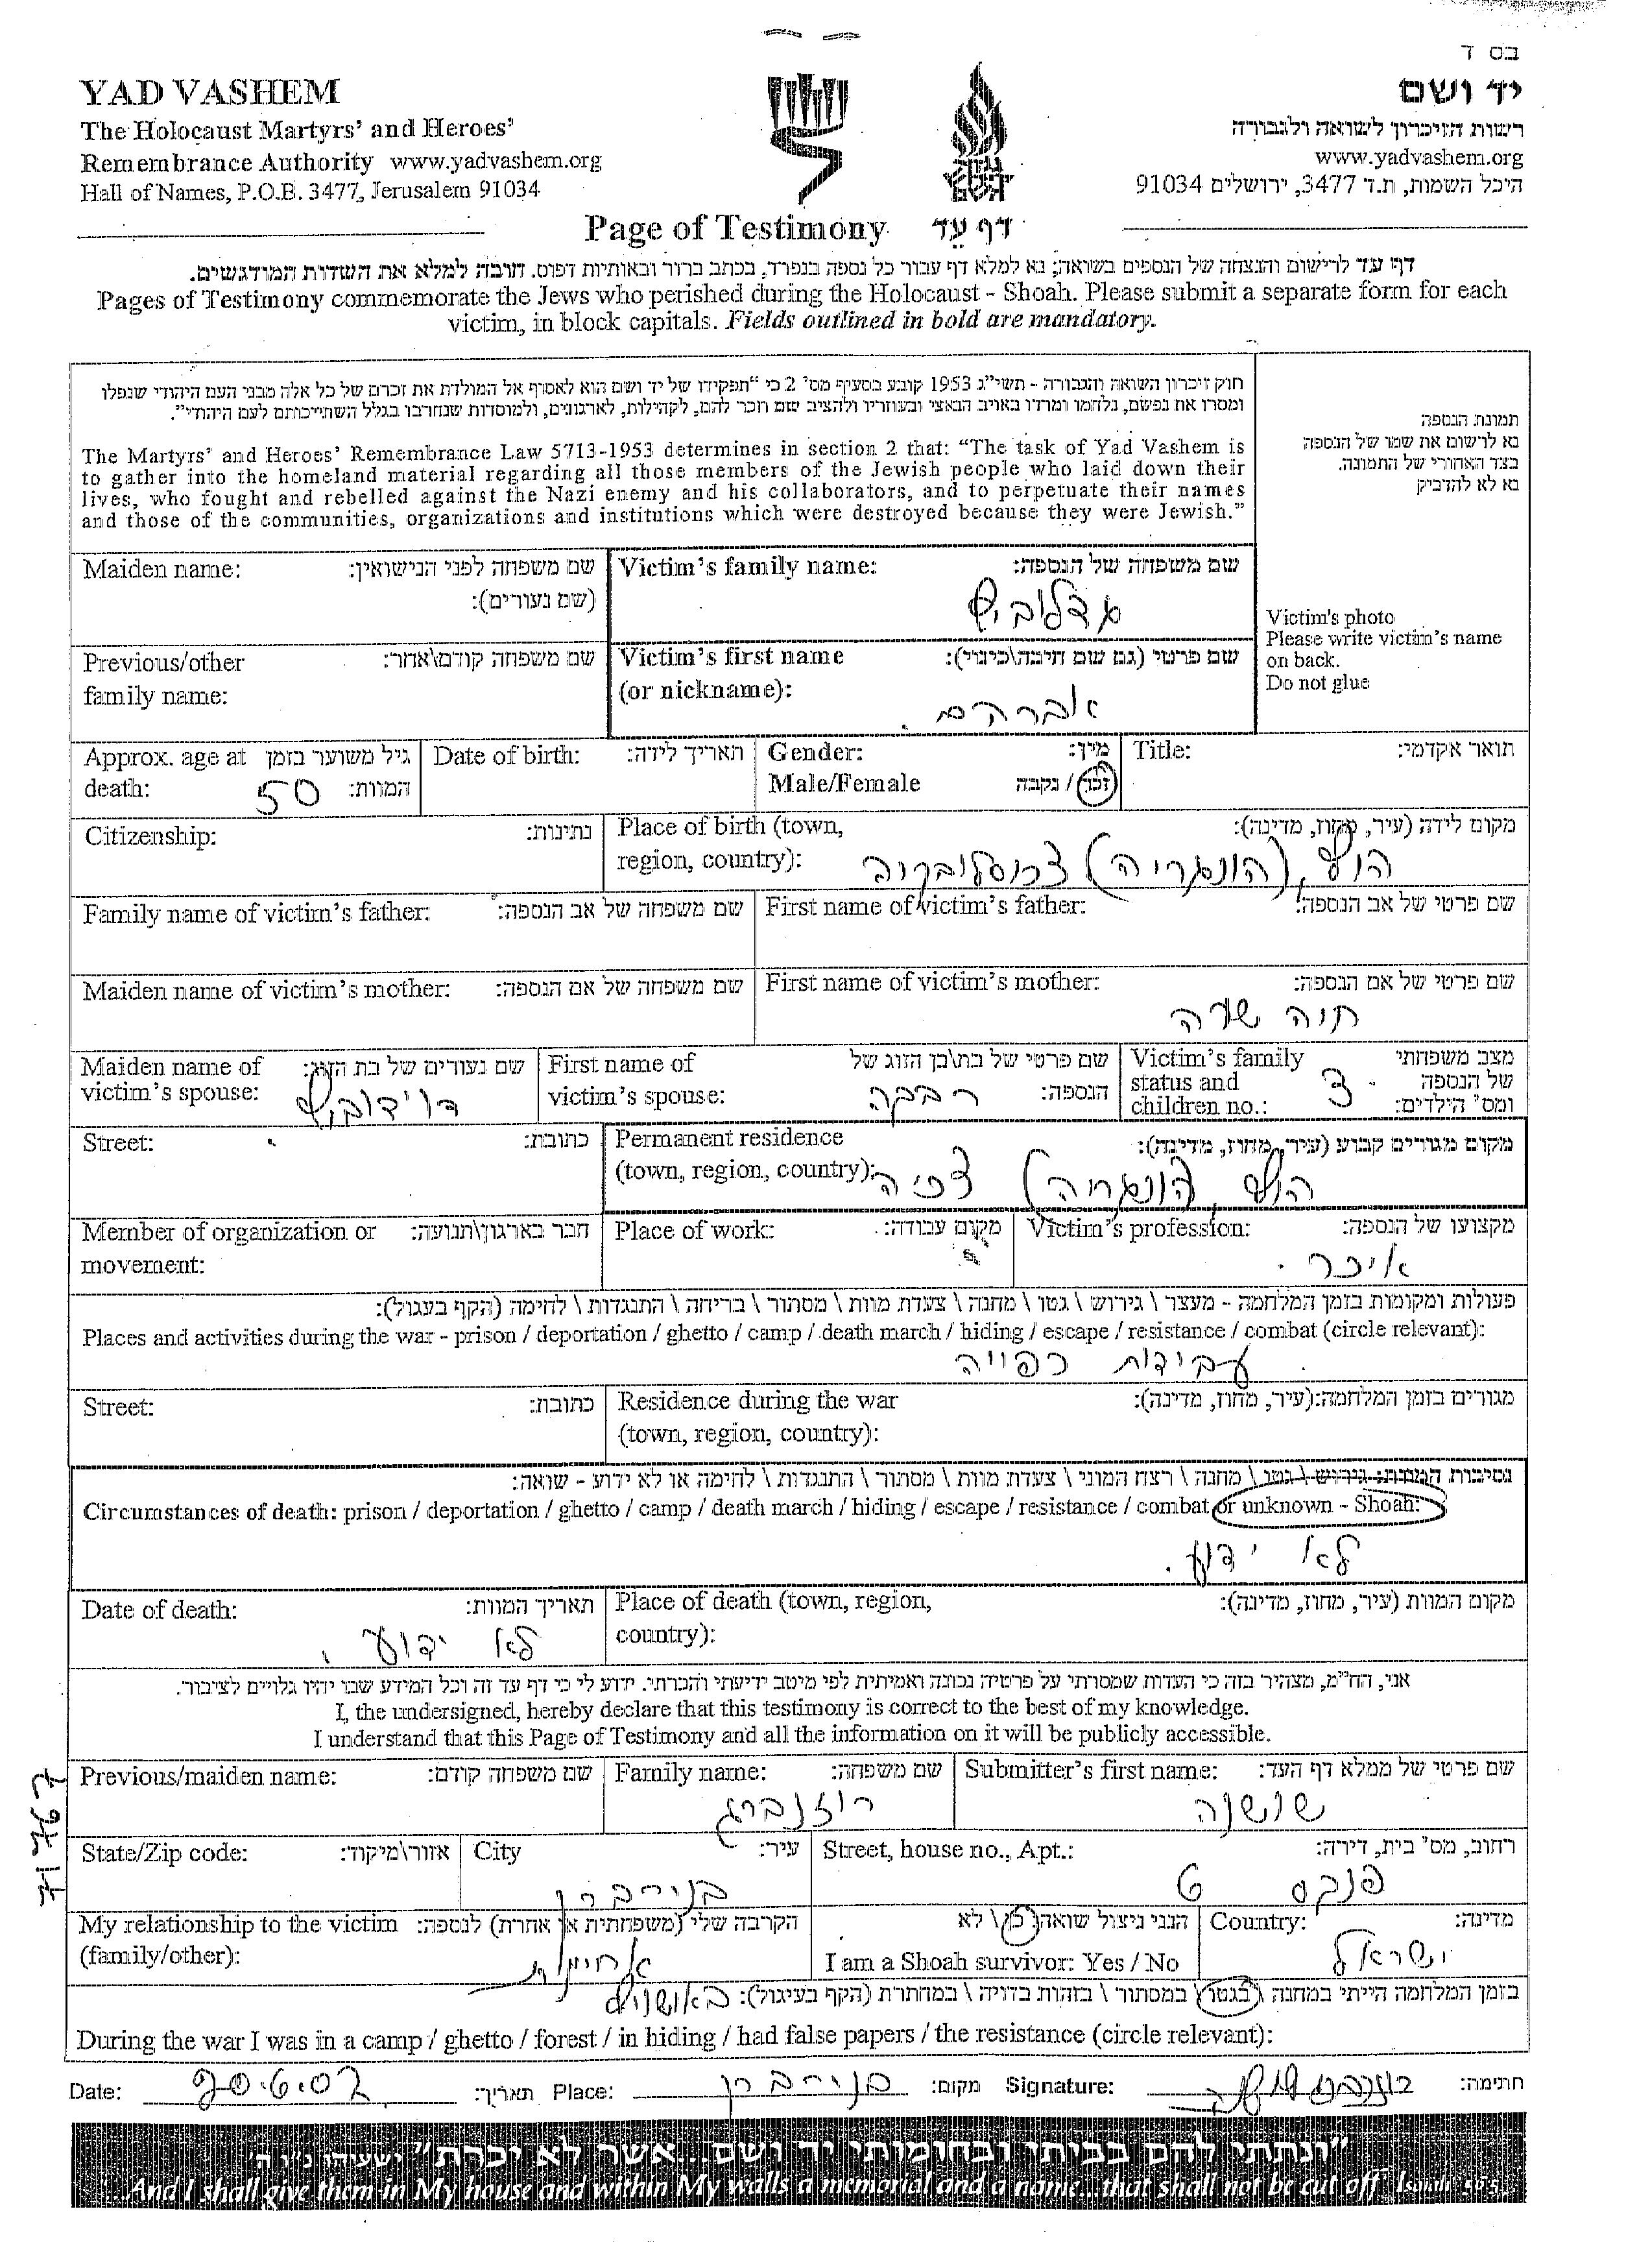 בס ד
YAD VASHEM
יד ושם
The Holocaust Martyrs' and Heroes'
רשות הזיכרון לשואה ולגבורה
Remembrance Authority www.yadvashem.org
www.yadvashem.org
Hall of Names, P.O.B. 3477, Jerusalem 91034
היכל השמות, ת.ד 3477, ירושלים 91034
Page of Testimony דף עד
דף עד לרישום והנצחה של הנספים בשואה; נא למלא דף עבור כל נספה בנפרד, בכתב ברור ובאותיות דפוס. חובה למלא את השדות המודגשים.
Pages of Testimony commemorate the Jews who perished during the Holocaust - Shoah. Please submit a separate form for each
victim, in block capitals. Fields outlined in bold are mandatory.
חוק זיכרון השואה והגבורה - תשי"ג 1953 קובע בסעיף מס' 2 כי "תפקידו של יד ושם הוא לאסוף אל המולדת את זכרם של כל אלה מבני העם היהודי שנפלו
ומסרו את נפשם, נלחמו ומרדו באויב הנאצי ובעוזריו ולהציב שם וזכר להם, לקהילות, לארגונים, ולמוסדות שנחרבו בגלל השתייכותם לעם היהודי".
The Martyrs' and Heroes' Remembrance Law 5713-1953 determines in section 2 that: "The task of Yad Vashem is
to gather into the homeland material regarding all those members of the Jewish people who laid down their
lives, who fought and rebelled against the Nazi enemy and his collaborators, and to perpetuate their names
and those of the communities, organizations and institutions which were destroyed because they were Jewish."
תמונת הנספה
נא לרשום את שמו של הנספה
בצד האחורי של התמונה.
נא לא להדביק
Victim's photo
Please write victim's name
on back.
Do not glue
Maiden name: שם משפחה לפני הנישואין:
(שם נעורים):
Victim's family name: שם משפחה של הנספה:
אדלוביץ
Previous/other שם משפחה קודם\אחר:
family name:
Victim's first name שם פרטי (גם שם חיבה\כינוי):
(or nickname):
אברהם.
Approx. age at גיל משוער בזמן
death: המוות: 50
Date of birth: תאריך לידה:
Gender: מין:
Male/Female זכר / נקבה
Title: תואר אקדמי:
Citizenship: נתינות:
Place of birth (town, מקום לידה (עיר, מחוז, מדינה):
region, country):
(הונגריה) צכוסלובקיה
Family name of victim's father: שם משפחה של אב הנספה:
First name of victim's father: שם פרטי של אב הנספה:
Maiden name of victim's mother: שם משפחה של אם הנספה:
First name of victim's mother: שם פרטי של אם הנספה:
חוה שרה
Maiden name of שם נעורים של בת הזוג:
victim's spouse: דוידוביץ
First name of שם פרטי של בת\בן הזוג של
victim's spouse: הנספה: רבקה
Victim's family מצב משפחתי
status and של הנספה
children no.: ומס' הילדים: 3
Street: כתובת:
Permanent residence מקום מגורים קבוע (עיר, מחוז, מדינה):
(town, region, country):
(הונגריה) צכיה
Member of organization or חבר בארגון\תנועה:
movement:
Place of work: מקום עבודה:
Victim's profession: מקצועו של הנספה:
איכר.
פעולות ומקומות בזמן המלחמה - מעצר \ גירוש \ גטו \ מחנה \ צעדת מוות \ מסתור \ בריחה \ התנגדות \ לחימה (הקף בעגול):
Places and activities during the war - prison / deportation / ghetto / camp / death march / hiding / escape / resistance / combat (circle relevant):
עבודות כפוייה
Street: כתובת:
Residence during the war מגורים בזמן המלחמה:(עיר, מחוז, מדינה):
(town, region, country):
נסיבות המוות: גירוש \ גטו \ מחנה \ רצח המוני \ צעדת מוות \ מסתור \ התנגדות \ לחימה או לא ידוע - שואה:
Circumstances of death: prison / deportation / ghetto / camp / death march / hiding / escape / resistance / combat or unknown - Shoah:
לא ידוע.
Date of death: תאריך המוות:
לא ידוע.
Place of death (town, region, מקום המוות (עיר, מחוז, מדינה):
country):
אני, הח"מ, מצהיר בזה כי העדות שמסרתי על פרטיה נכונה ואמיתית לפי מיטב ידיעתי והכרתי. ידוע לי כי דף עד זה וכל המידע שבו יהיו גלויים לציבור.
I, the undersigned, hereby declare that this testimony is correct to the best of my knowledge.
I understand that this Page of Testimony and all the information on it will be publicly accessible.
Previous/maiden name: שם משפחה קודם:
Family name: שם משפחה:
רוזנברג
Submitter's first name: שם פרטי של ממלא דף העד:
שושנה
State/Zip code: אזור\מיקוד:
City עיר:
בני ברק
Street, house no., Apt.: רחוב, מס' בית, דירה:
פנקס 6
My relationship to the victim הקרבה שלי (משפחתית או אחרת) לנספה:
(family/other): אחיינית
הנני ניצול שואה: כן \ לא
I am a Shoah survivor: Yes / No
Country: מדינה:
ישראל
בזמן המלחמה הייתי במחנה \ בגטו \ במסתור \ בזהות בדויה \ במחתרת (הקף בעיגול): באושויץ
During the war I was in a camp / ghetto / forest / in hiding / had false papers / the resistance (circle relevant):
Date: 20.6.02 תאריך: Place: בני ברק מקום: Signature: רוזנברג שושנה חתימה:
"ונתתי להם בביתי ובחומותי יד ושם...אשר לא יכרת" ישעיהו נ"ו ה'
...And I shall give them in My house and within My walls a memorial and a name...that shall not be cut off Isaiah 56:5